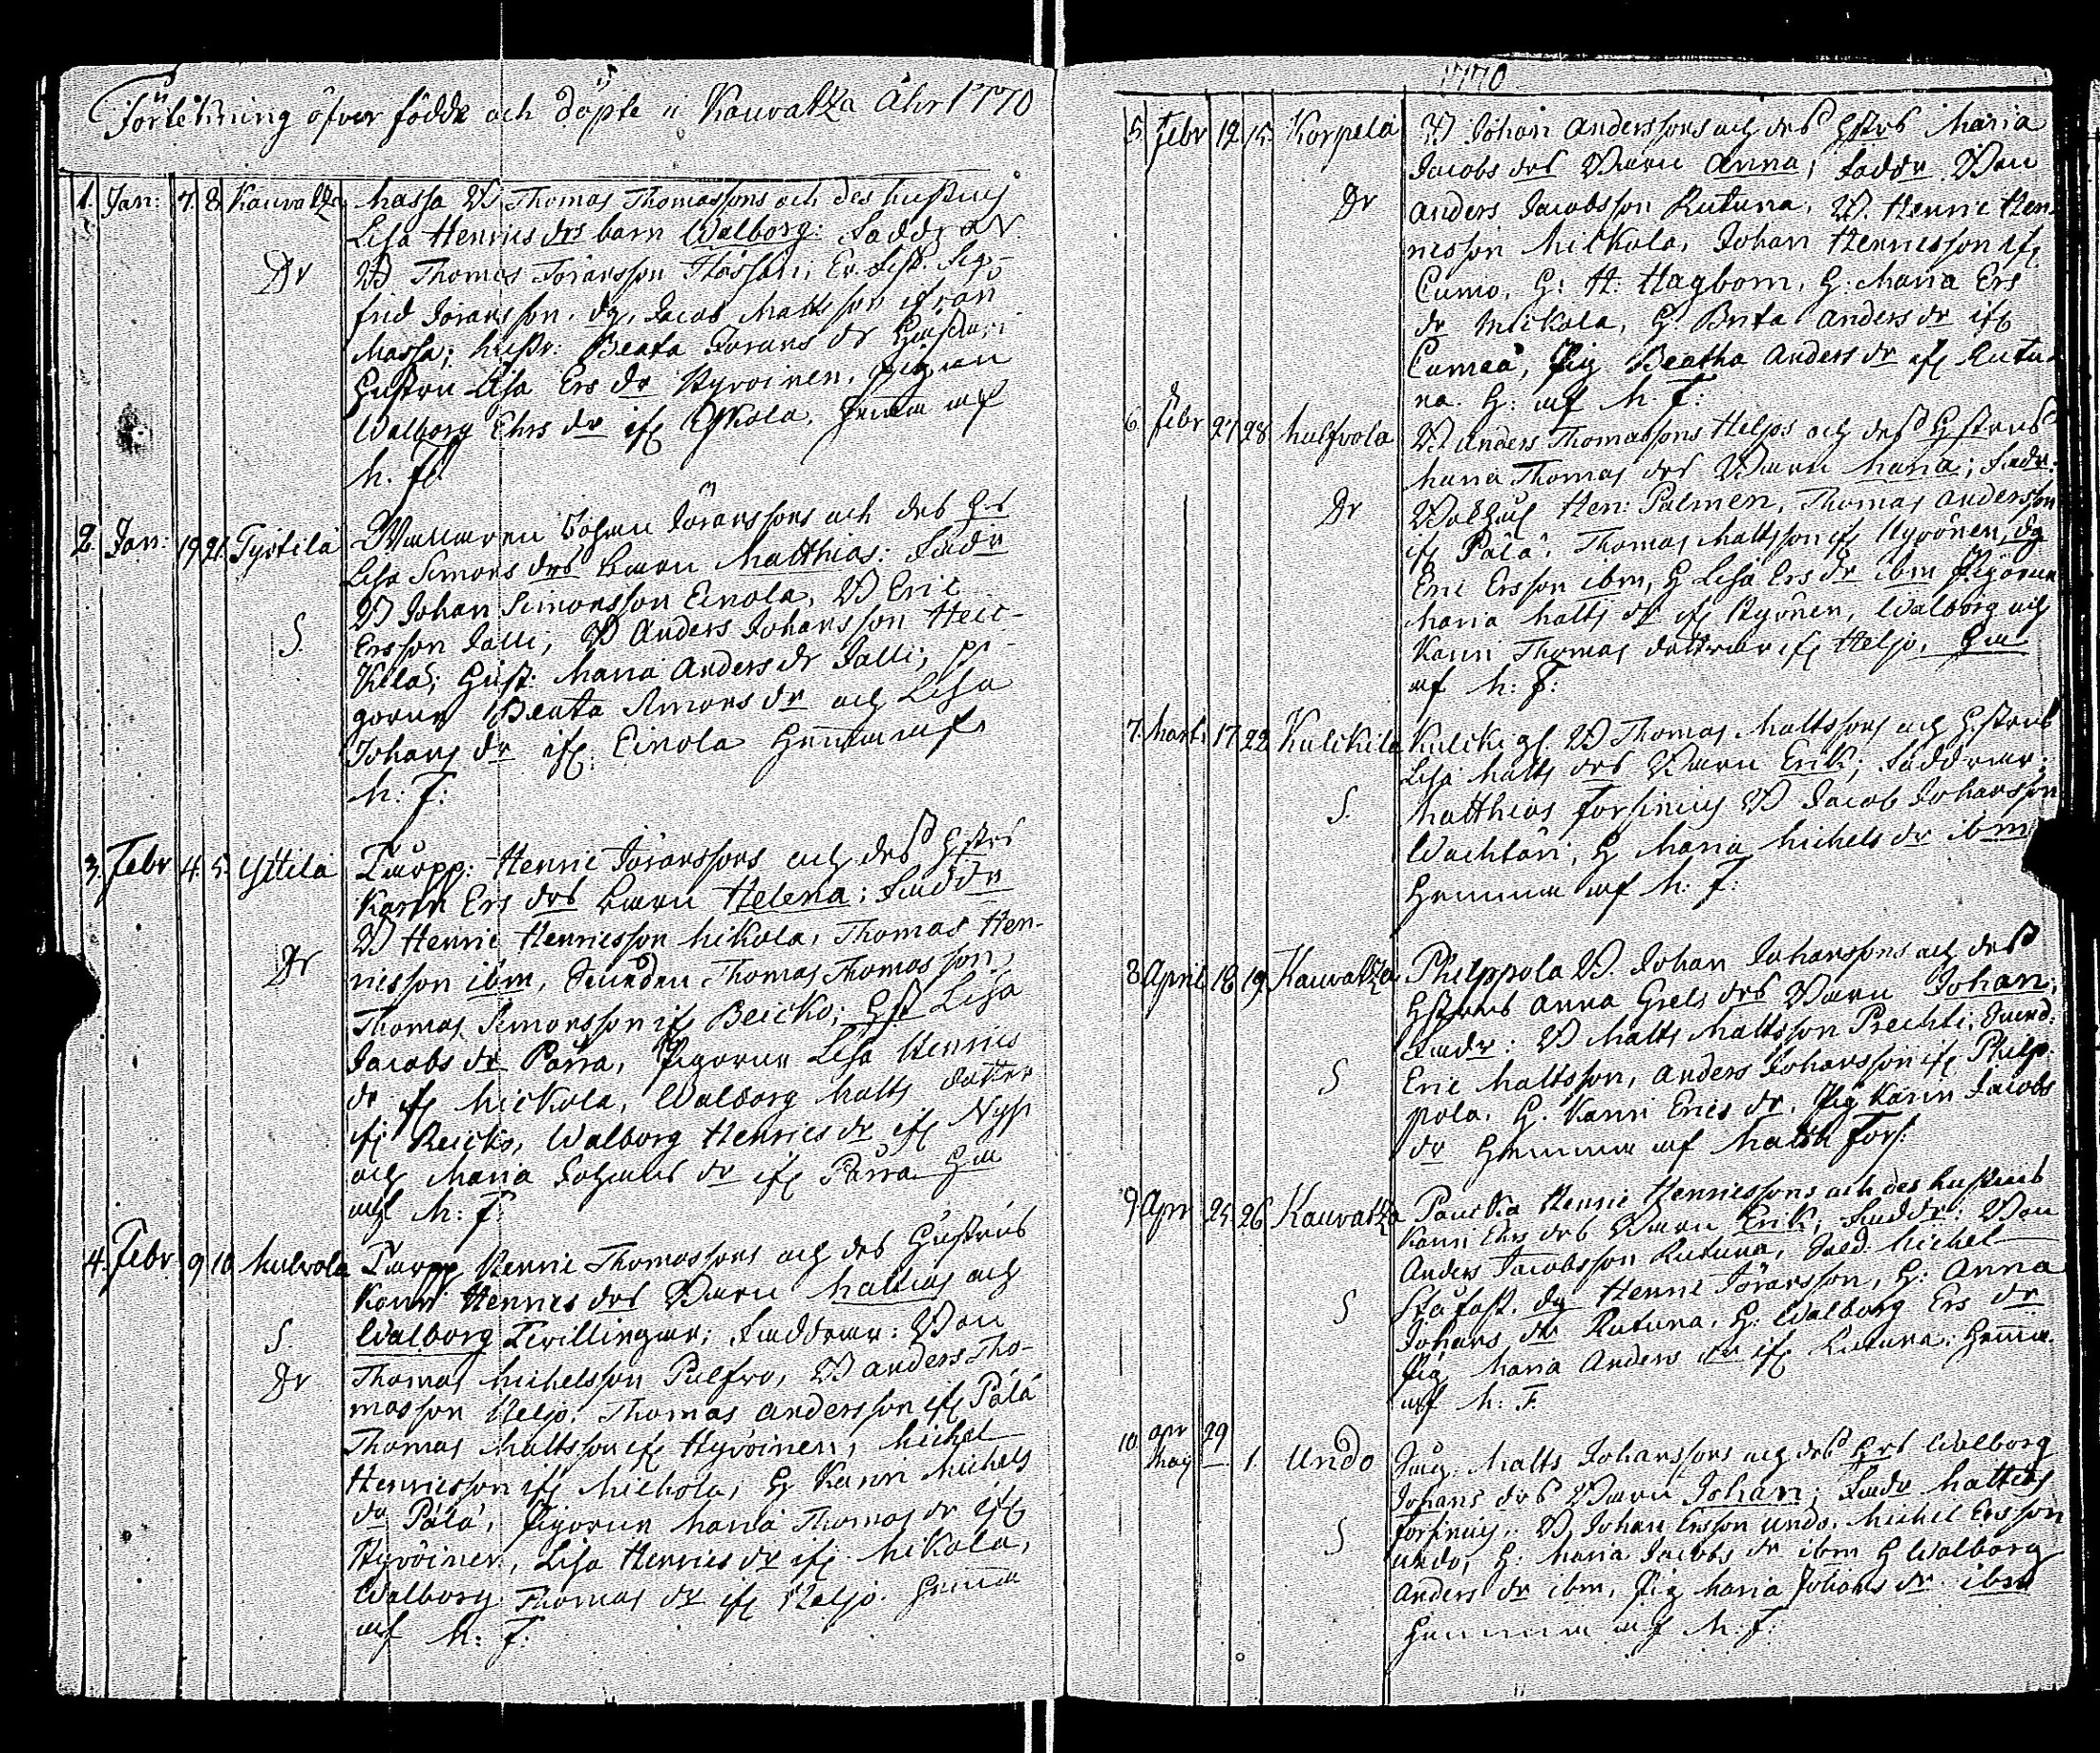 Förtekning öfver födde och döpte i Kauvatza Åhr 1770
1. Jan: 7. 8. Kauvatza Massa W Thomas Thomassons och des hustrus
Lisa Henrics drs barn Walborg: Fadd:
Dr W Thomas Jöransson
frid Jöransson. dg, Jacob Mattsson ifrån
Massa; hustr: Beata Jörans dr
Hustru Lisa Ers dr Hyvoinen, pigan
Walborg Ehrs dr ifr Eskola. hemma af
M. F.
2. Jan: 19. 21. Tyrtilä Johan Jöranssons och des
Lisa Simons drs barn Matthias: Fadr
W Johan Simonsson Einola, W Eric
S. Ersson Jalli; W Anders Johansson Heic-
kilä; Hust: Maria Anders dr Jalli; pi-
gorne Beata Simons dr och Lisa
Johans dr ifr: Einola
M: F:
3. Febr 4. 5. Yttilä Torpp: Henric Jöranssons och des
Karin Ers drs barn Helena: Faddr
W Henric Henricsson Mikola, Thomas Hen-
Dr ricsson ibm, Thomas Thomasson,
Thomas Simonsson ifr Reicko; Hst Lisa
Jacobs dr Parra, Pigorne Lisa Henrics
dr ifr Mickola, Walborg Matts dotter
ifr Reicko, Walborg Henrics dr ifr
och Maria Johans dr ifr Parra
af M: F:
4. Febr 9 10. Mulvola Torpp. Henric Thomassons och des Hustrus
Karin Henrics drs Barn Mattias och
S. Walborg Tvillingar; Faddrar: Bon
Dr Thomas Michelsson W Anders Tho-
masson Heljo. Thomas Andersson ifr Pälä
Thomas Mattsson ifr Hyvöinen, Michel
Henricsson ifr Mickola, H Karin Michels
dr Pälä, Pigorne Maria Thomas dr ifr
Hyvöinen, Lisa Henrics dr ifr Mikola,
Walborg Thomas dr ifr Heljo.
af M: F:
1770
5. Febr 12. 15. Korpela W Johan Anderssons och des Hstrs Maria
Jacobs drs Barn Anna; Faddr Bon
Dr Anders Jacobsson Rutuna, W. Henric Hen-
ricsson Mickola, Johan Henricsson ifr
Cumo, H: H: Hagbom, H: Maria Ers
dr Mickola, H. Brita Anders dr ifr
Cumoå, Pig Beatha Anders dr ifr Rutu-
na. H: af M. F:
6. Febr 27 28 W Anders Thomassons Heljos och des Hstrus
Maria Thomas drs Barn Maria; Fadr:
Dr Hen: Palmen, Thomas Andersson
ifr Pälä. Thomas Mattsson ifr Hyvönen, dg
Eric Ersson ibm, H Lisa Ers dr ibm Pigorne
Maria Matts dr ifr Hyvönen, Walborg och
Karin Thomas döttrar ifr Heljo,
af M: F:
7. Marti 17 22 Kulckila W Thomas Mattssons och Hstrus
Lisa Matts drs Barn Erik; Faddrar:
S. Matthias Forsinius W Jacob Johansson
H Maria Michels dr ibm
Hemma af M: F:
8. April 18 19. Kauvatza Philppola W. Johan Johanssons och des
Hstrus Anna Grels drs Barn Johan;
Fadr: W Matts Mattsson
S Eric Mattsson, Anders Johansson ifr Philp-
pola. H. Karin Erics dr. Pig Karin Jacobs
dr Hemma af Matth Fors:
9. Apr 25 26 Kauvatza Henric Henricssons och des hustrus
Karin Ehrs drs Barn Erik; Faddr: Bon
Anders Jacobsson Rutuna, Michel
S dg Henric Jöransson, H: Anna
Johans dr Rutuna, H: Walborg Ers dr
Pig Maria Anders dr ifr Rutuna:
af M: F.
10. Apr 29
May 1. Undo Matts Johanssons och des Walborg
Johans drs Barn Johan; Fadr Mattias
S Forsinius, W Johan Ersson Undo, Michel Ersson
Undo, H: Maria Jacobs dr ibm H Walborg
Anders dr ibm, Pig Maria Johans dr ibm
Hemma af M: F: